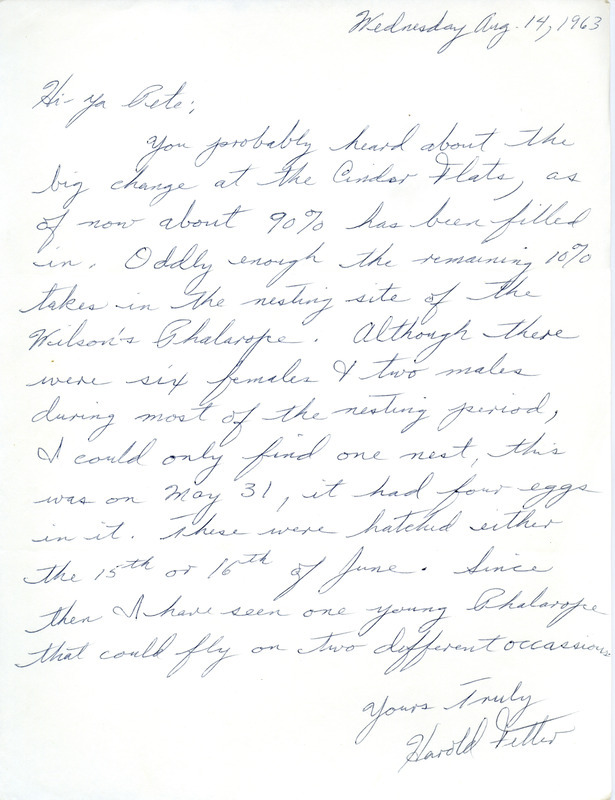 Wednesday Aug. 14, 1963
Hi-ya Pete;
You probably heard about the
big change at the Cinder Flats, as
of now about 90% has been filled
in. Oddly enough the remaining 10%
takes in the nesting site of the
Wilson's Phalarope. Although there
were six females & two males
during most of the nesting period,
I could only find one nest, this
was on May 31, it had four eggs
in it. These were hatched either
the 15th or 16th of June. Since
then I have seen one young Phalarope
that could fly on two different occassions.
Yours Truly
Harold Fetter